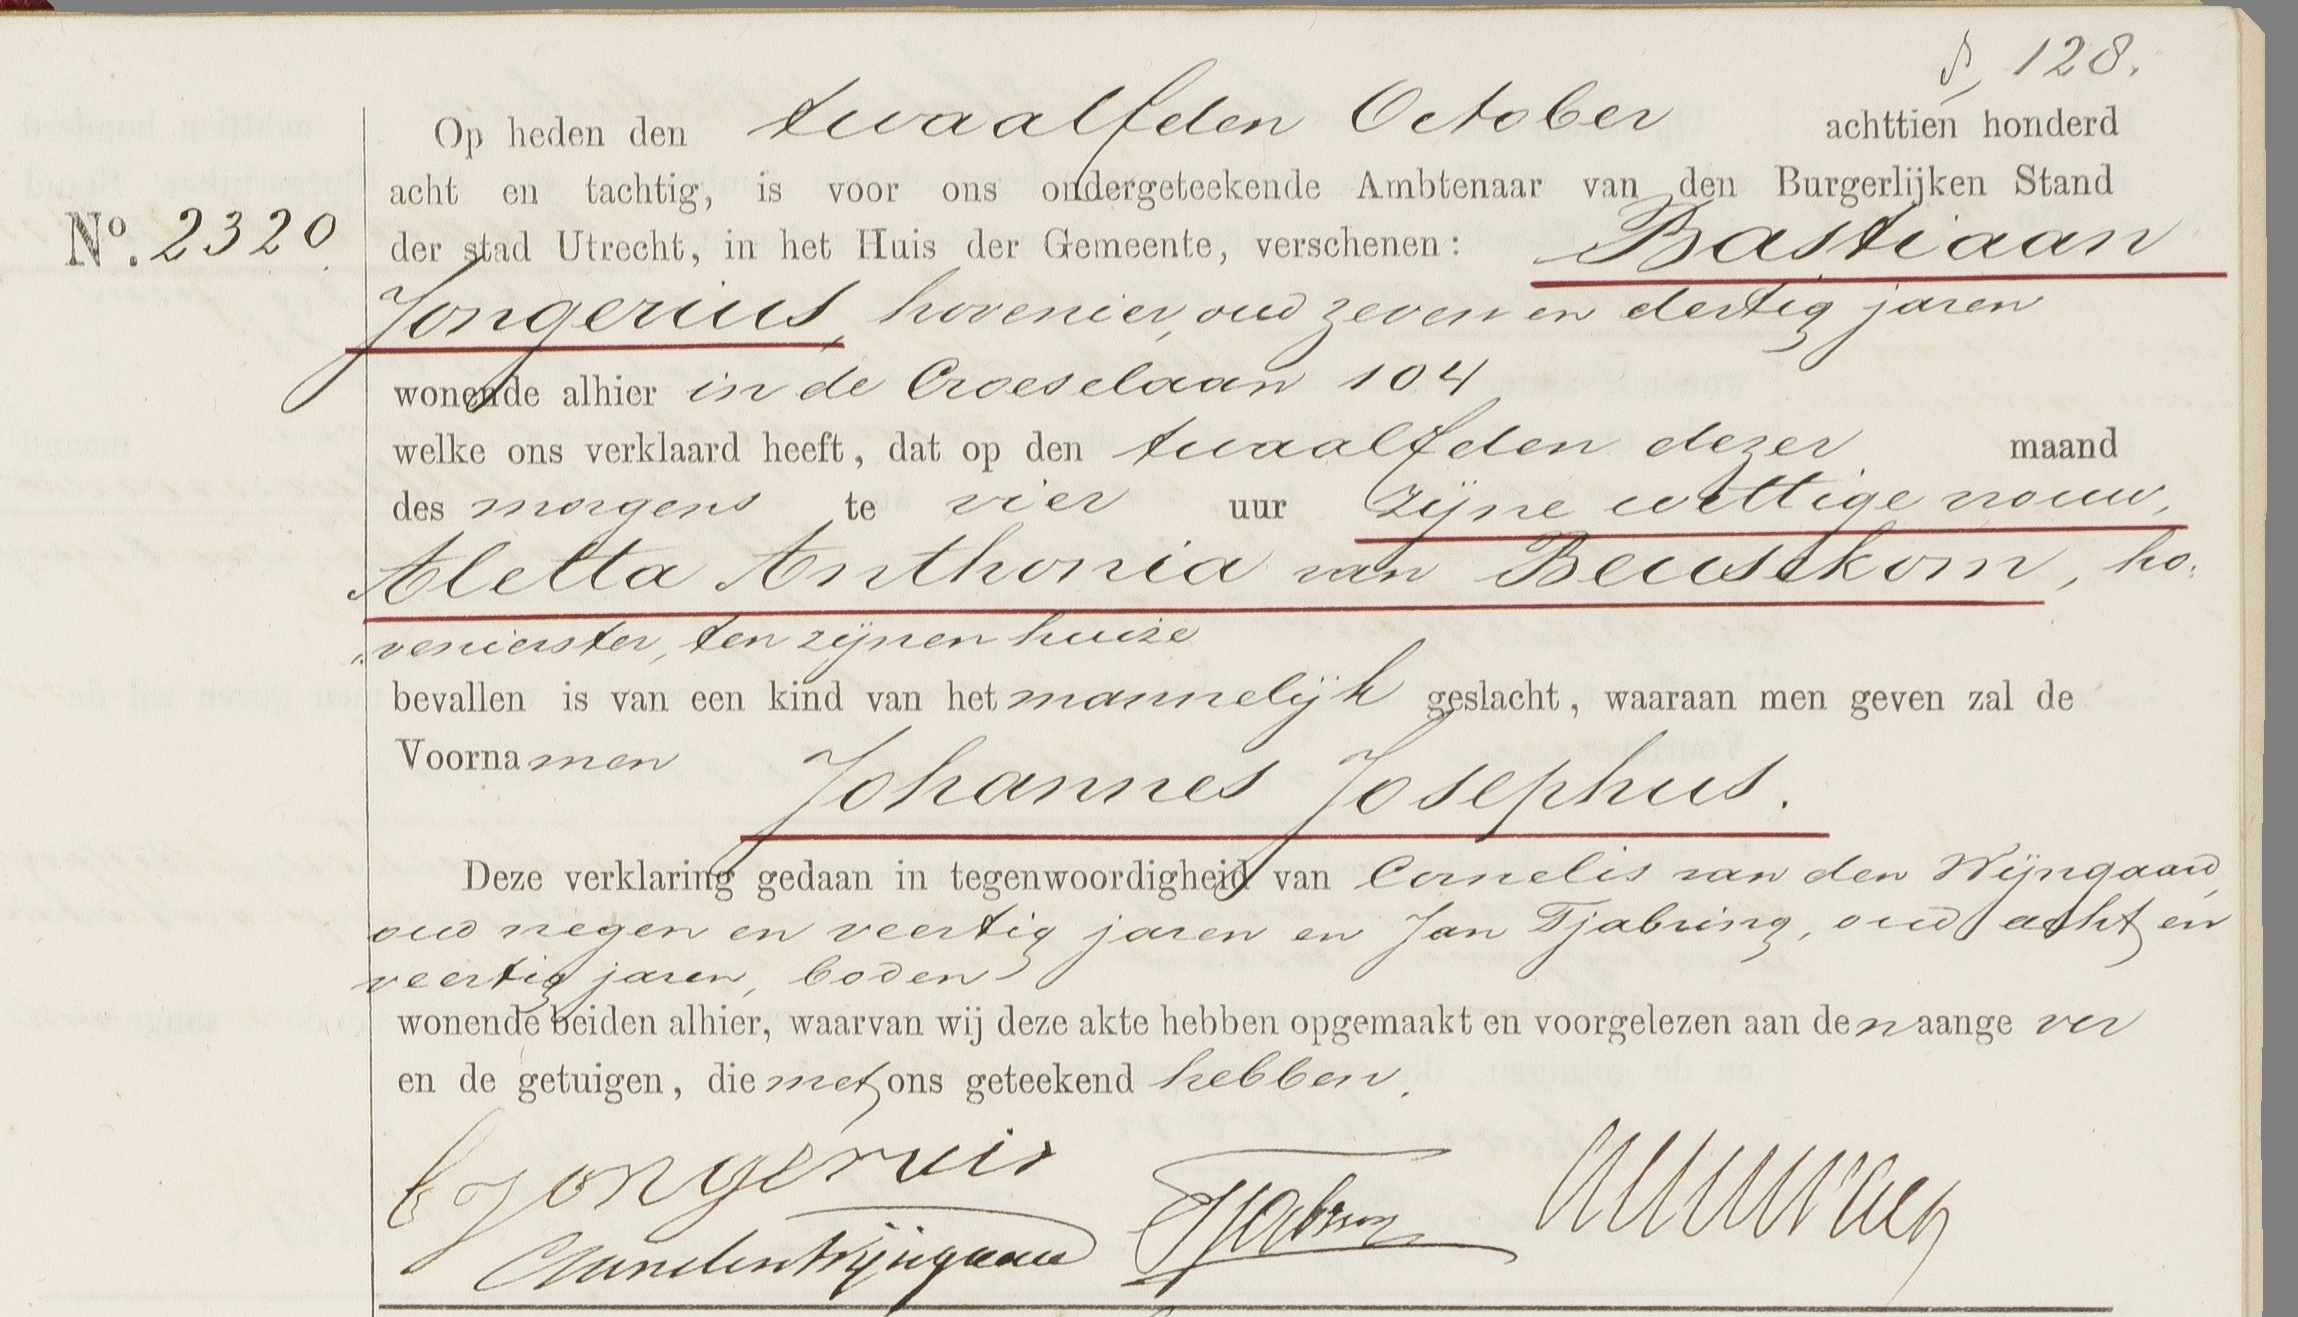 128.
Op heden den twaalfden October achttien honderd
acht en tachtig, is voor ons ondergeteekende Ambtenaar van den Burgerlijken Stand
No. 2320
der stad Utrecht, in het Huis der Gemeente, verschenen: Bastiaan
Jongerius, hovenier, oud zeven en dertig jaren
wonende alhier in de Croeselaan 104
welke ons verklaard heeft, dat op den twaalfden dezer maand
des morgens te vier uur zijne wettige vrouw,
Aletta Anthonia van Beusekom, ho:
"venierster, ten zijnen huize
bevallen is van een kind van het mannelijk geslacht, waaraan men geven zal de
Voornamen Johannes Josephus.
Deze verklaring gedaan in tegenwoordigheid van Cornelis van den Wijngaard,
oud negen en veertig jaren en Jan Tjabring, oud acht en
veertig jaren, boden
wonende beiden alhier, waarvan wij deze akte hebben opgemaakt en voorgelezen aan den aange ver
en de getuigen, die met ons geteekend hebben.
B Jongerius
CvandenWijngaard
JTjabring